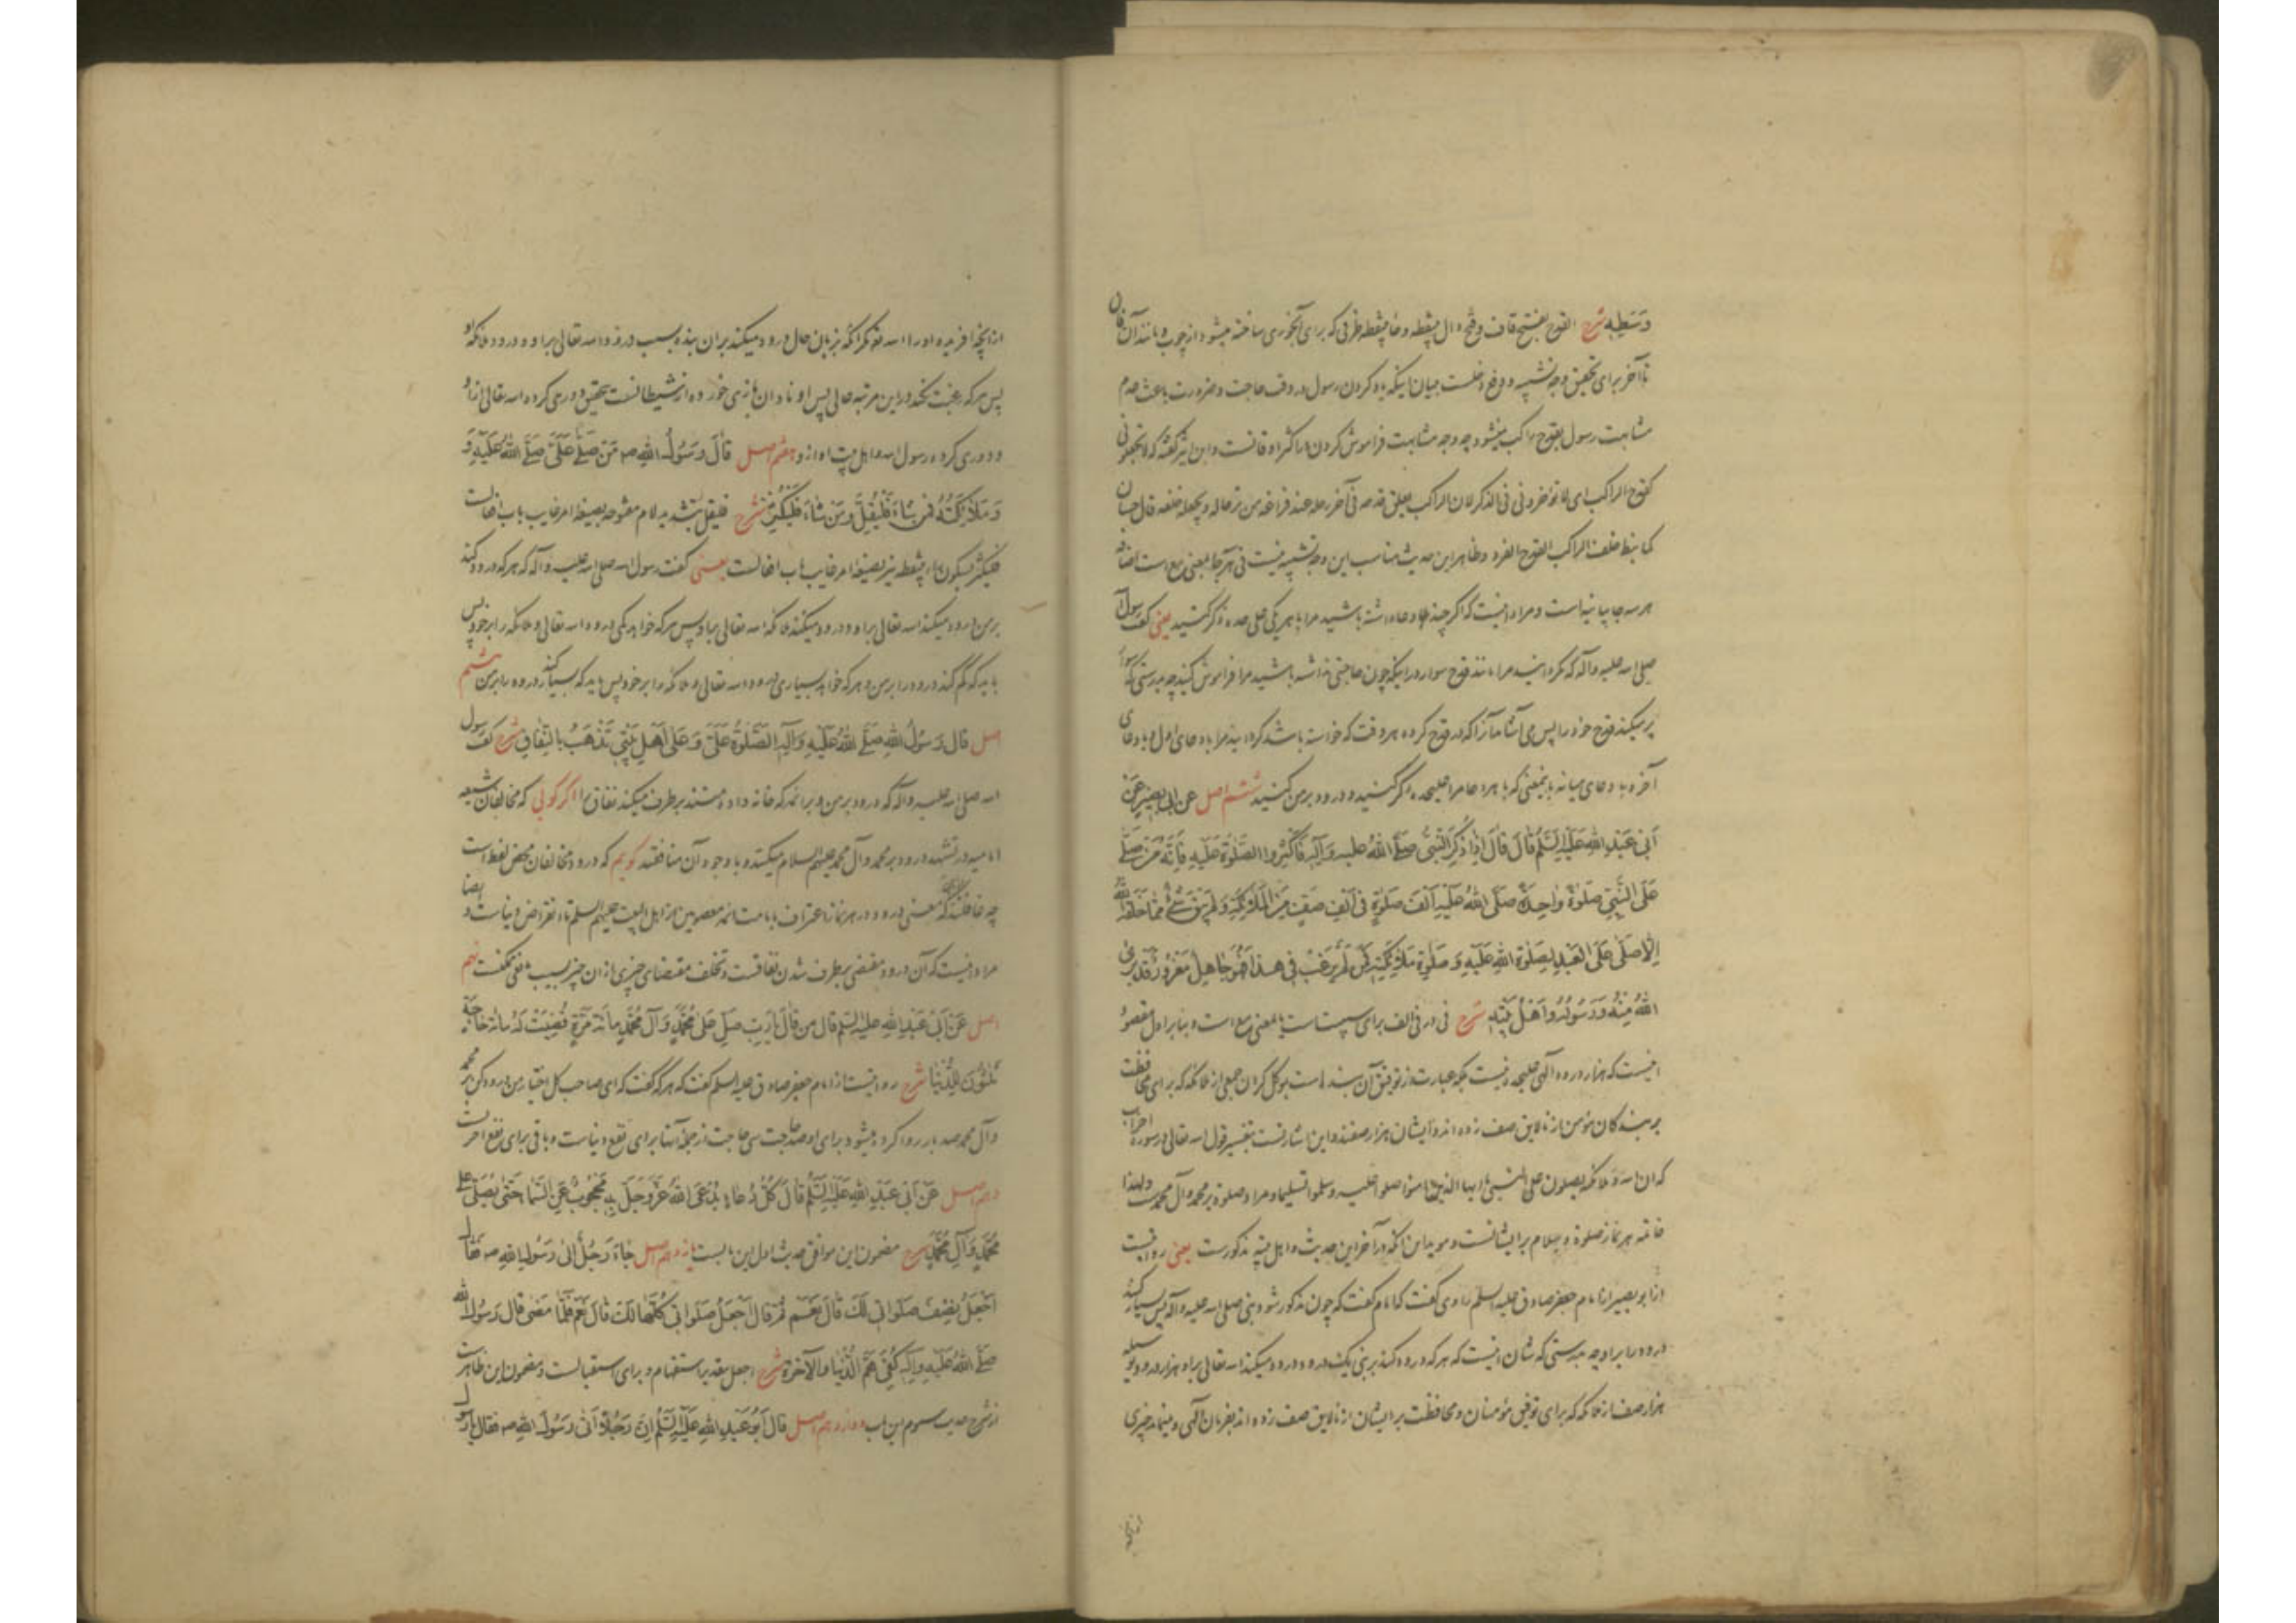 وَسَطِهِ شرح القدح بفتح قاف و فتح دال بینقطه و حا بینقطه ظرفی که برای آبخوری ساخته میشود از چوب و مانند آن فان
تا آخر برای تحقیق وجه تشبیه و دفع دخلست میان اینکه یاد کردن رسول در وقت حاجت و ضرورت باعث عدم
مشابهت رسول بقدح راکب میشود چه وجه مشابهت فراموش کردن در اکثر اوقاتست و ابن اثیر گفته که لا تجعلونی
کقدح الراکب ای لا تؤخرونی فی الذکر لان الراکب یعلق قدحه فی آخر رحله عند فراغه من ترحاله و یجعله خلفه قال حسان
کما نیط خلف الراکب القدح الفرد و ظاهر این حدیث مناسب این وجه تشبیه نیست فی هر جا بمعنی مع است اضافه
هر سه جا بیانیه است و مراد اینست که اگر چند دعا داشته باشید مرا با هر یکی علی حده ذکر کنید یعنی گفت رسول
صلی الله علیه و آله که مگردانید مرا مانند قدح سوار در اینکه چون حاجتی نداشته باشید مرا فراموش کنید چه بدرستی که سوار
پر میکند قدح خود را پس می آشامد آنرا که در قدح کرده هر وقت که خواسته باشد گردانید مرا با دعای اول و با دعای
آخر و با دعای میانه باینمعنی که با هر دعا مرا علیحده ذکر کنید و درود بر من کنید ششم اصل عن ابی بصیر عَن
اَبی عَبدِ اللهِ عَلَیهِ السَّلَمُ قالَ قالَ اِذا ذُکِرَ النَّبیُّ صَلَّی اللهُ علیه وَآلِهِ فَاَکثِرُوا الصَّلوةَ عَلَیهِ فَاِنَّهُ مَن صَلّی
عَلَی النَّبِیِّ صَلوةً واحِدَةً صَلَّی اللهُ عَلَیهِ اَلفَ صَلوةٍ فی اَلفِ صَفٍّ مِنَ المَلائِکَةِ وَلَم یَبقَ شَیءٌ مِمّا خَلَقَهُ اللهُ
اِلّا صَلّی عَلَی العَبدِ لِصَلوةِ اللهِ عَلَیهِ وَ صَلوةِ مَلائِکَتِهِ فَمَن لَم یَرغَب فی هذا فَهُوَ جاهِلٌ مَغرُورٌ قَد بَرِئَ
اللهُ مِنهُ وَرَسُولُهُ وَاَهلُ بَیتِهِ شرح فی در فی الف برای سببیت است یا بمعنی مع است و بنابر اول مقصود
اینست که هزار درود الهی علیحده نیست بلکه عبارت از توفیق آن بنده است بموکل کردن جمعی از ملائکه که برای محافظت
بر بندگان مؤمن از نالایق صف زده اند و ایشان هزار صفند و این اشارتست بتفسیر قول الله تعالی در سوره احزاب
که ان الله و ملائکته یصلون علی النبی یا ایها الذین آمنوا صلوا علیه و سلموا تسلیما و مراد صلوة بر محمد و آل محمد است و لهذا
خاتمه هر نماز صلوة و سلام بر ایشانست و موید این آنکه در آخر این حدیث و اهل بیته مذکورست یعنی روایت
از ابو بصیر از امام جعفر صادق علیه السلم راوی گفت که امام گفت که چون مذکور شود نبی صلی الله علیه و آله پس بسیار کنید
درود را بر او چه بدرستی که شان اینست که هر که درود کند بر نبی یک درود درود میکند الله تعالی بر او هزار درود بوسیله
هزار صف از ملائکه که برای توفیق مؤمنان و محافظت بر ایشان از نالایق صف زده اند بفرمان الهی و نمیماند چیزی
از آنچه
از آنچه آفریده او را الله مگر آنکه بزبان حال درود میکند بر آن بنده بسبب درود الله تعالی بر او و درود ملائکه او
پس هر که رغبت نکند در این مرتبه عالی پس او نادان بازی خورده از شیطانست بتحقیق دوری کرده الله تعالی از او
و دوری کرده رسول الله و اهل بیت او از او هفتم اصل قالَ رَسُولُ اللهِ صه مَن صَلّی عَلَیَّ صَلَّی اللهُ عَلَیهِ وَ
وَ مَلائِکَتُهُ فَمَن شاءَ فَلیُقِلَّ وَمَن شاءَ فَلیُکثِر شرح فلیقل بتشدید لام مفتوحه بصیغه امر غایب باب افعالست
فلیکثر بسکون ثاء سه نقطه نیز بصیغه امر غایب باب افعالست یعنی گفت رسول الله صلی الله علیه و آله که هر که درود کند
بر من درود میکند الله تعالی بر او و درود میکنند ملائکه الله تعالی بر او پس هر که خواهد کمی درود الله تعالی و ملائکه را بر خود پس
باید که کم کند درود را بر من و هر که خواهد بسیاری درود الله تعالی و ملائکه را بر خود پس باید که بسیار کند درود را بر من هشتم
اصل قالَ رَسُولُ اللهِ صَلَّی اللهُ عَلَیهِ وَآلِهِ الصَّلوةُ عَلَیَّ وَعَلی اَهلِ بَیتی تَذهَبُ بِالنِّفاقِ شرح گفت رسول
الله صلی الله علیه و آله که درود بر من و بر آنها که خانه داده منند بر طرف میکند نفاق را اگر گویی که مخالفان شیعه
امامیه در تشهد درود بر محمد و آل محمد علیهم السلام میکنند و با وجود آن منافقند گویم که درود مخالفان محض لفظ است
چه غافلند از اینکه معنی درود در هر نماز اعتراف بامامت ائمه معصومین از اهل البیت علیهم السلم تا انقراض دنیاست و ایضا
مراد اینست که آن درود مقتضی بر طرف شدن نفاقست و تخلف مقتضای چیزی از آن چیز بسبب مانعی ممکنست نهم
اصل عَن اَبی عَبدِ اللهِ علیه السلم قال مَن قالَ یا رَبِّ صَلِّ عَلی مُحَمَّدٍ وَ آلِ مُحَمَّدٍ مِائَةَ مَرَّةٍ قُضِیَت لَهُ مِائَةُ حاجَةٍ
ثَلثُونَ لِلدُّنیا شرح روایتست از امام جعفر صادق علیه السلم گفت که هر که گفت که ای صاحب کل اختیار من درود کن بر محمد
و آل محمد صد بار روا کرده میشود برای او صد حاجت سی حاجت از جمله آنها برای نفع دنیاست و باقی برای نفع آخرت
دهم اصل عَن اَبی عَبدِ اللهِ عَلَیهِ السَّلَمُ قالَ کُلُّ دُعاءٍ یُدعَی اللهُ عَزَّوَجَلَّ بِهِ مَحجُوبٌ عَنِ السَّماءِ حَتّی یُصَلّی عَلی
مُحَمَّدٍ وَ آلِ مُحَمَّدٍ شرح مضمون این موافق حدیث اول این بابست یازدهم اصل جاءَ رَجُلٌ اِلی رَسُولِ اللهِ صه فَقالَ
اَجعَلُ نِصفَ صَلَواتی لَکَ قالَ نَعَم ثُمَّ قالَ اَجعَلُ صَلَواتی کُلَّها لَکَ قالَ نَعَم فَلَمّا مَضی قالَ رَسُولُ اللهِ
صَلَّی اللهُ عَلَیهِ وَآلِهِ کُفِیَ هَمَّ الدُّنیا وَ الآخِرَةِ شرح اجعل بتقدیر استفهام و برای استقبالست و مضمون این ظاهرست
از شرح حدیث سوم این باب دوازدهم اصل قالَ اَبُو عَبدِ اللهِ عَلَیهِ السَّلَمُ اِنَّ رَجُلاً اَتی رَسُولَ اللهِ صه فَقالَ یا رَسُولَ